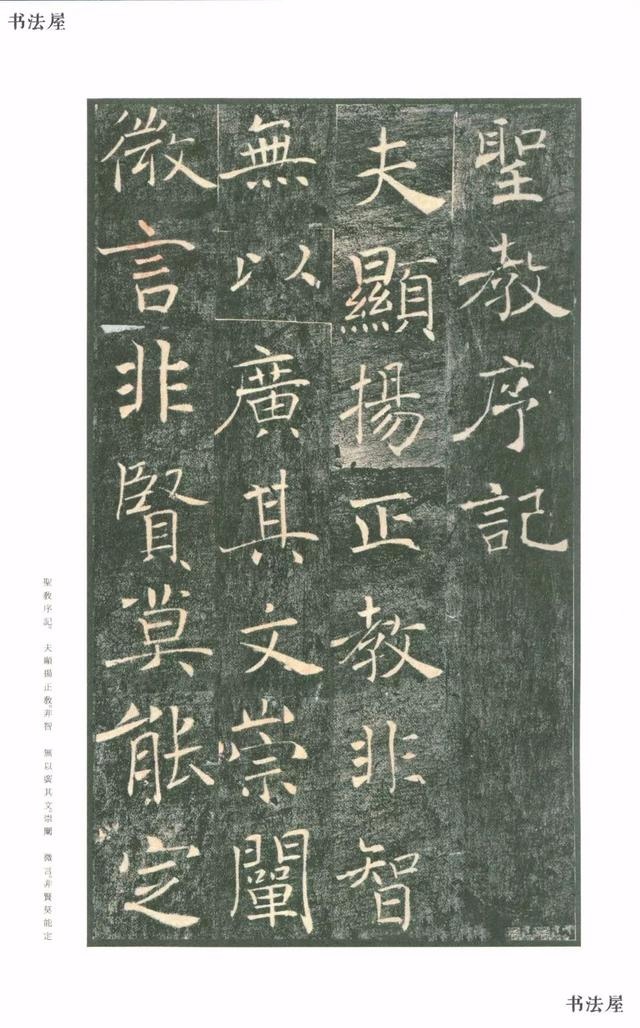 书法屋
聖教序記
夫顯揚正教非智
無以廣其文崇闡
微言非賢莫能定
聖教序記。 夫顯揚正教。非智 無以廣其文。崇闡 微言。非賢莫能定
书法屋